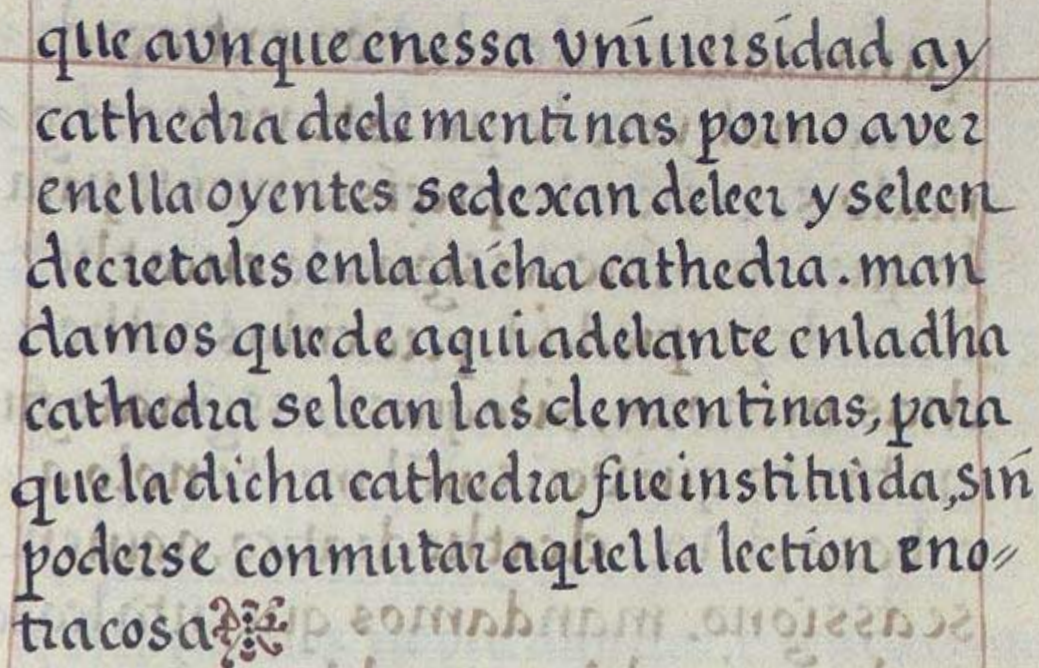 que avnque enessa vniuersidad ay
cathedra declementinas porno aver
enella oyentes sedexan deleer y seleen
decretales enla dicha cathedra. man
damos que de aqui adelante enla dha
cathedra selean las clementinas, para
que la dicha cathedra fue instituida, sin
poderse conmutar aquella lection eno=
tra cosa